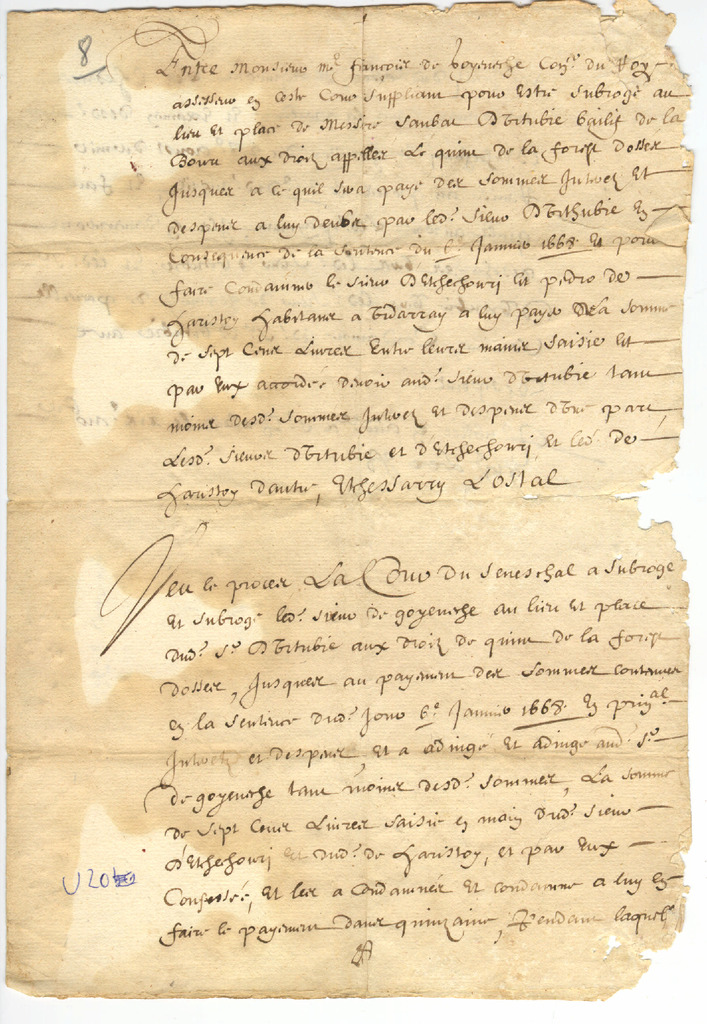 8
Entre Monsieur me françois de Goyeneche Conr. du Roy
assesseur en ceste Cour suppliant pour estre subrogé au
lieu et place de Messire Saubat D'Urtubie bailif de la
Bour aux droitz appellez Le quint de la forest dosses
Jusques a ce quil sera payé des sommes Interetz et
despens a luy deubz par led. sieur D'Urthubie En
Consequence de la sentence du 6e. Janvier 1668 Et pour
faire Condamner le sieur D'Etchechouri et pedro de
haristoy habitans a bidarray a luy payer La somme
de sept Cens Livres Entre leurs mains saisie et
par Eux accordée devoir aud. sieur d'Urtubie tant
moins desd. sommes Interetz et despens d'une part,
Lesd. sieurs d'Urtubie et d'Etchechouri, et led. de
haristoy dautre, Etchessarry Lostal
Veu le procez La Cour du Seneschal a subrogé
Et subroge led. sieur de goyeneche au lieu et place
dud. sr. D'Urtubie aux droitz de quint de la forest
dosses, Jusques au payement des sommes contenues
en la sentence dud. Jour 6e. Janvier 1668 En prinal
Interetz et despens, Et a adiugé et adiuge aud. sr.
De goyeneche tant moins desd. sommes, La somme
de sept Cens Livres saisie en mains dud. sieur
d'Etchechouri et dud. de haristoy, et par Eux
Confessée, Et les a Condamnés Et condamne a luy En
faire le payement dans quinzaine, Pendant laquele
U 20